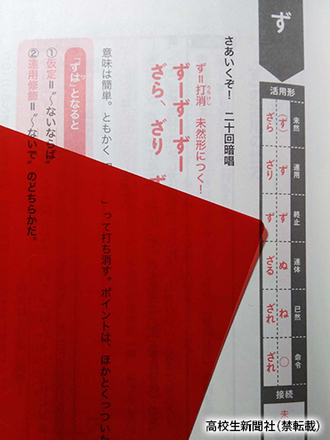 ず
活用形
未然
連用
終止
連体
已然
命令
接続
(ず)
ず
ず
ぬ
ね
○
未
ざら
ざり
ざる
ざれ
ざれ
さあいくぞ！ 二十回暗唱
ず＝打消 未然形につく！
ずーずーずー
ざら、ざり ず
意味は簡単。ともかく「 」って打ち消す。ポイントは、ほかとくっついた
「ずは」となると
①仮定＝“〜ないならば”
②連用修飾＝“〜ないで” のどちらかだ。
高校生新聞社(禁転載)